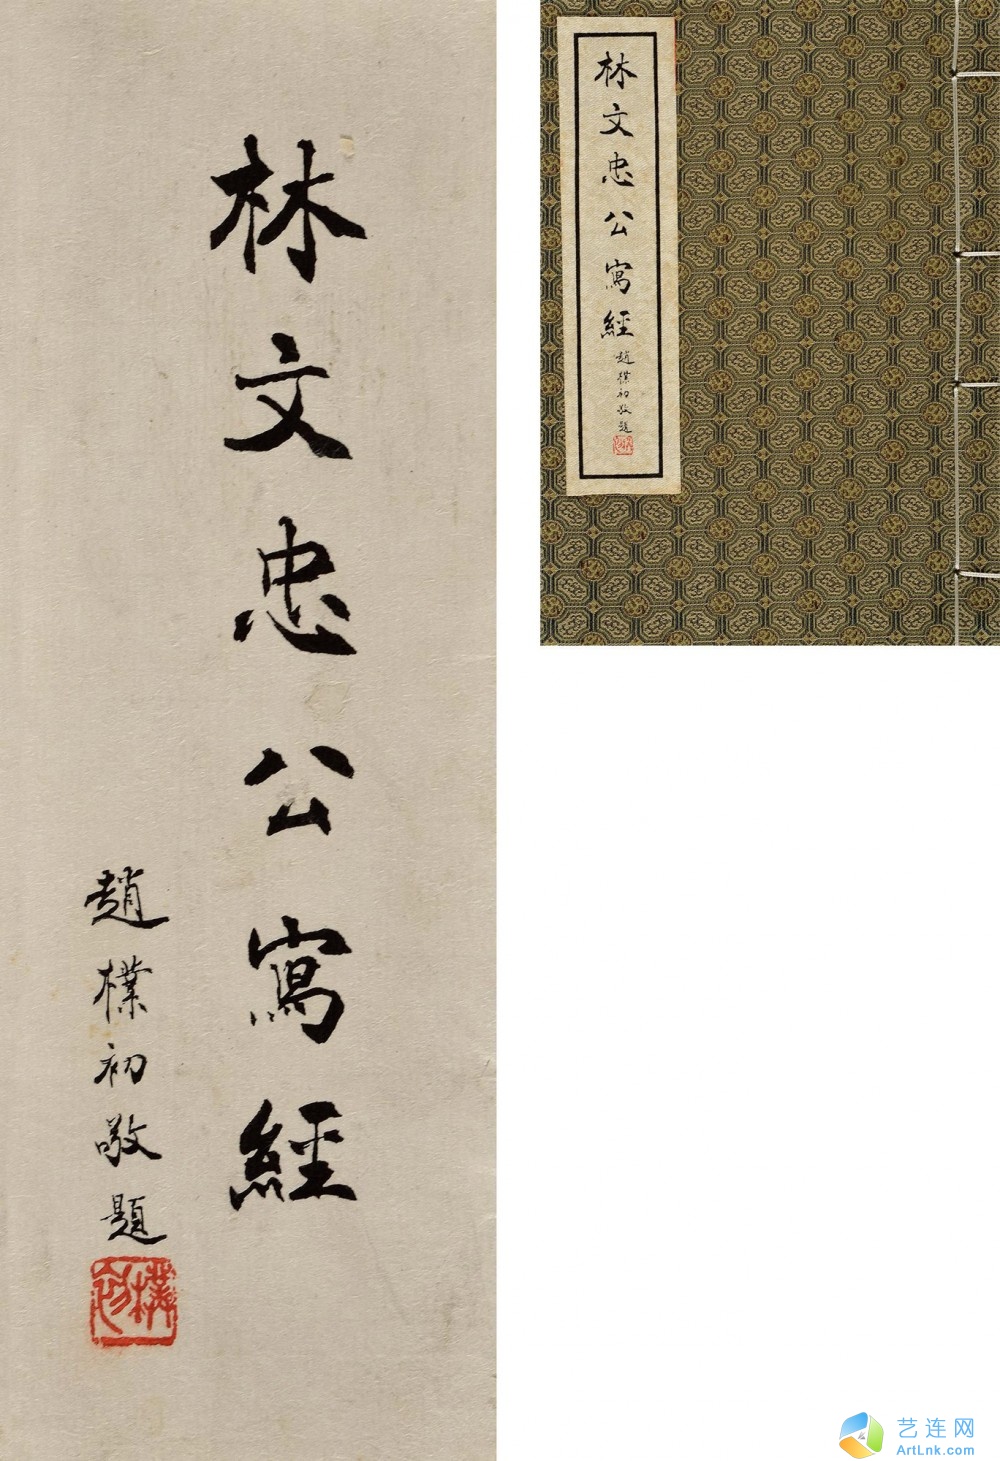 林文忠公寫經
趙樸初敬題
樸初
林文忠公寫經
趙樸初敬題
艺连网
ArtLnk.com